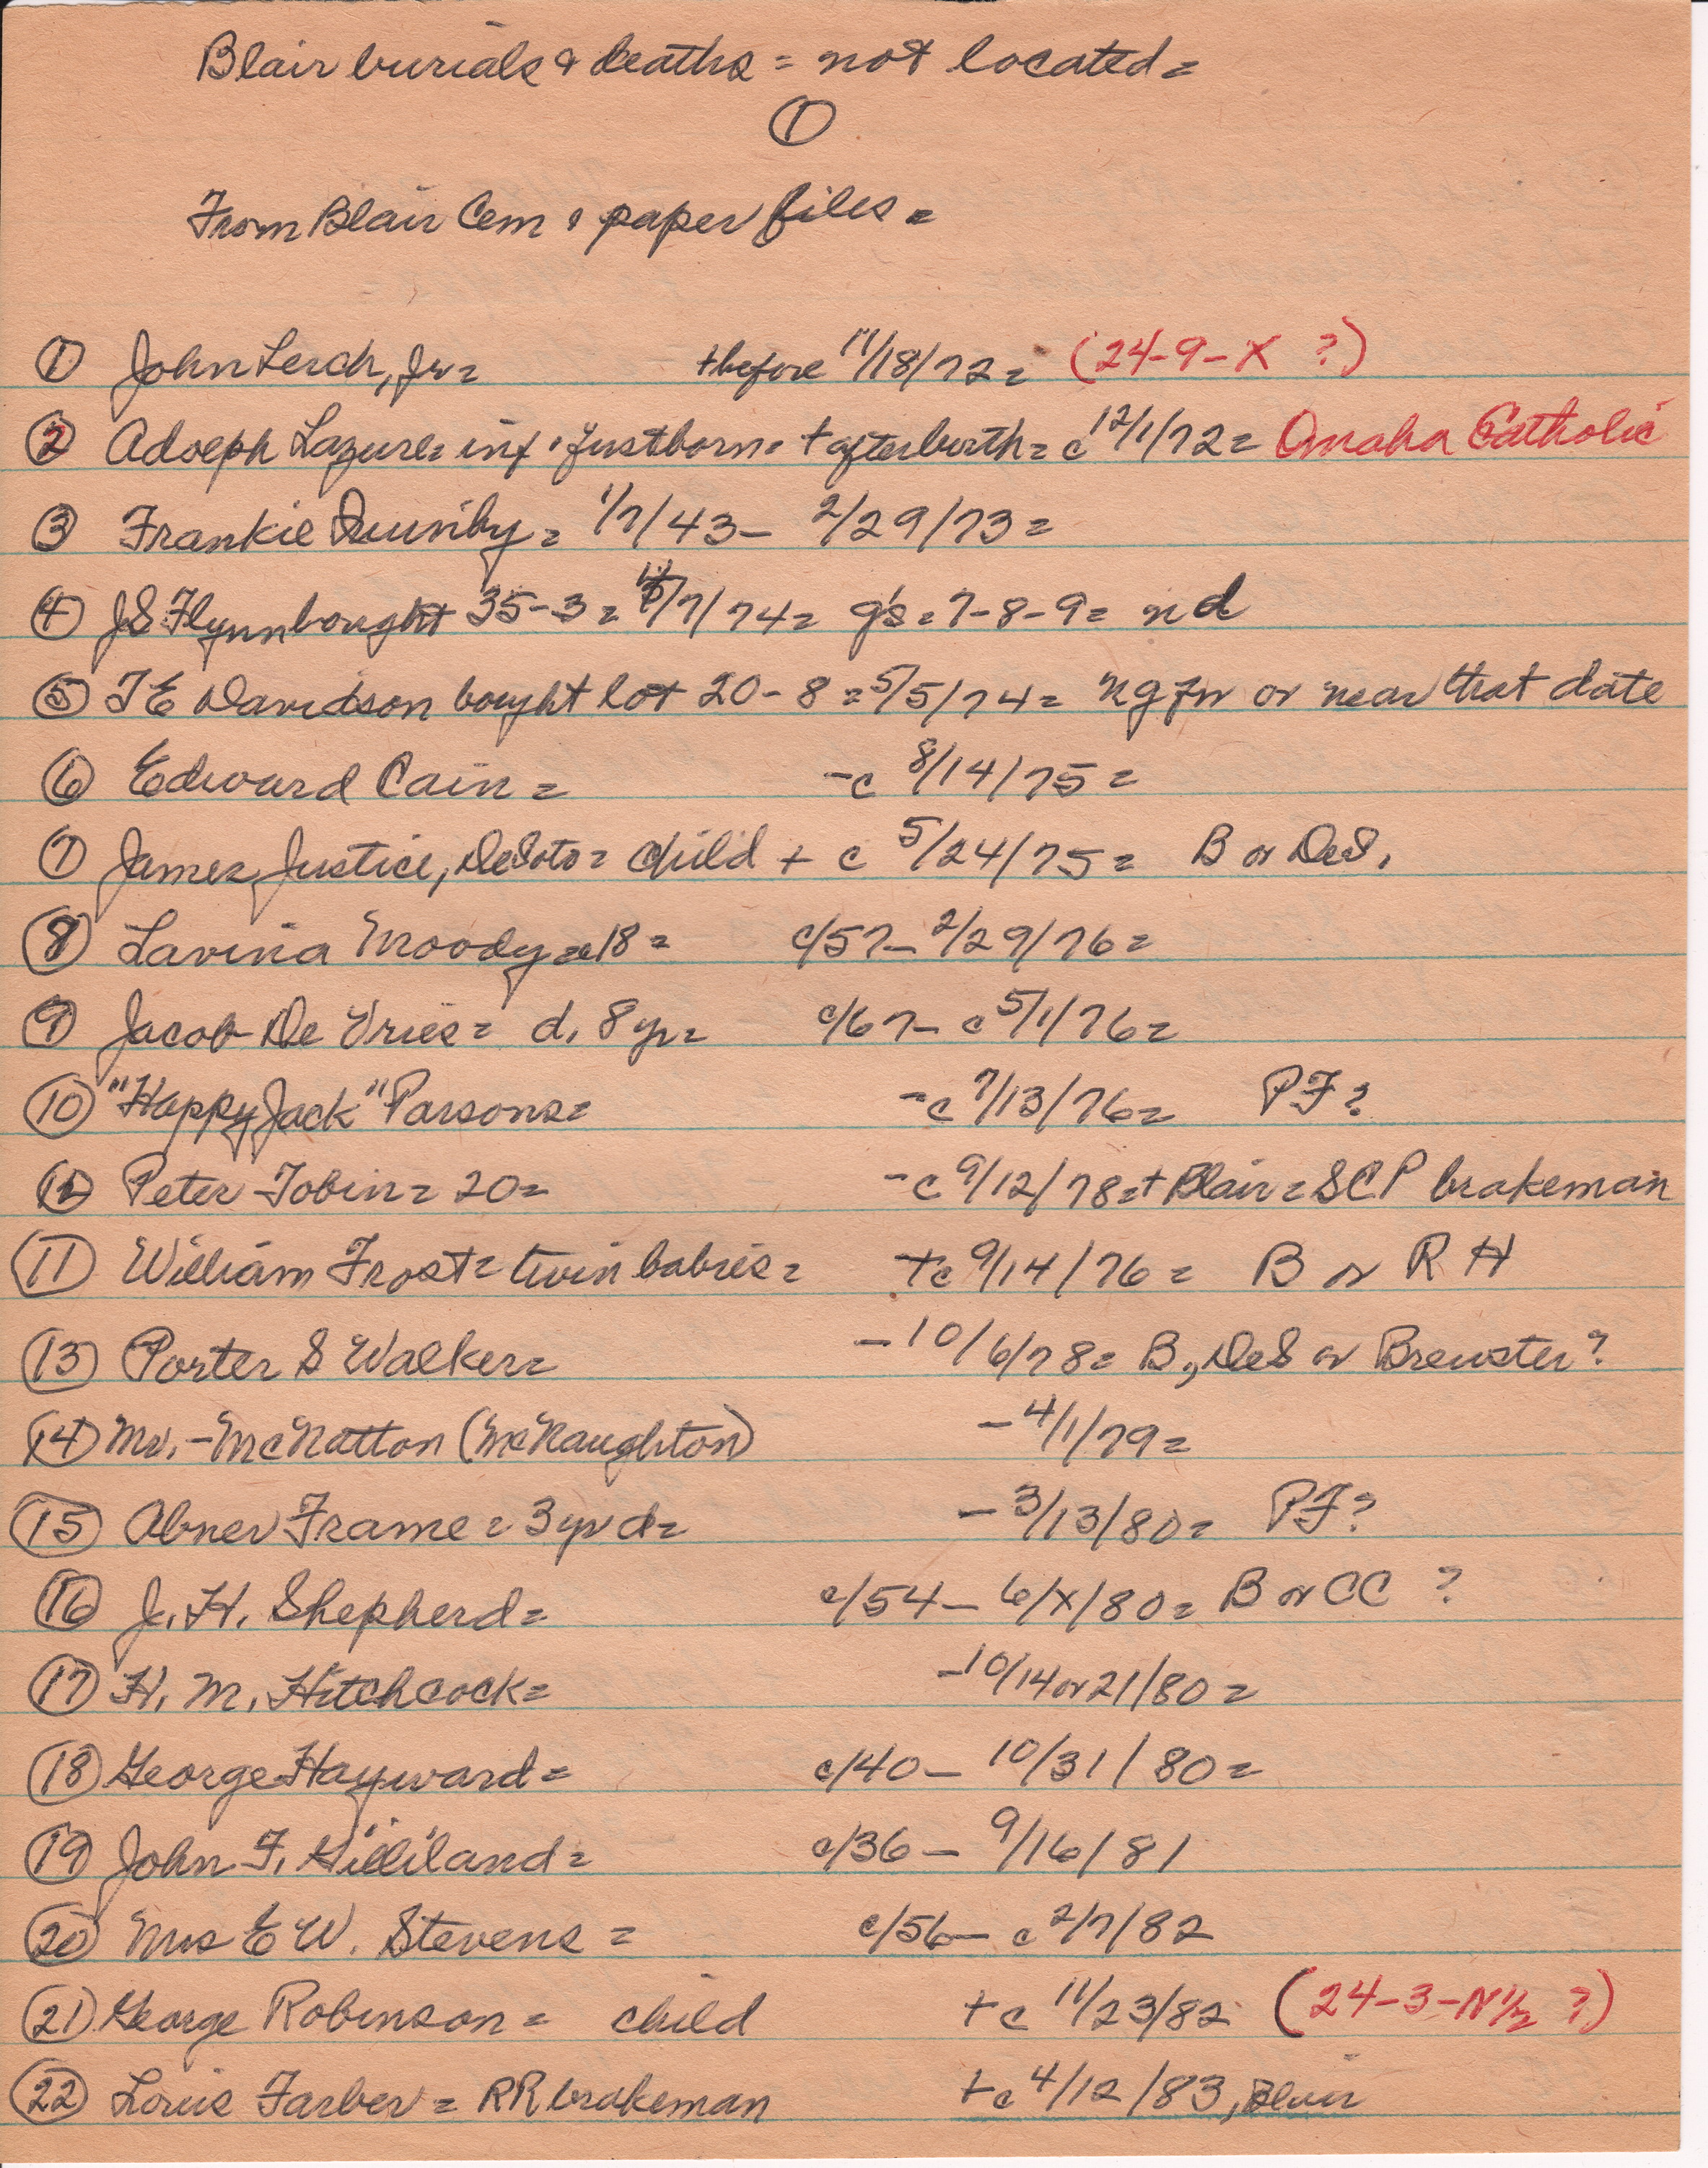 Blair burials & deaths = not located =
①
From Blair Cem & paper files =
① John Lerch, Jr = + before 11/18/72 = (24-9-X ?)
② Adolph Lazure = inf · just born · + after birth = c 12/1/72 = Omaha Catholic
③ Frankie = 1/7/43 - 2/29/73 =
④ JS Flynn bought 35-3 = /7/74 = g's = 7-8-9 = nd
⑤ TE Davidson bought lot 20-8 = 5/5/74 = or near that date
⑥ Edward Cain = - c 8/14/75 =
⑦ James Justice, DeSoto = child + c 5/24/75 = B or DeS.
⑧ Lavina Moody = 18 = c/57 - 2/29/76 =
⑨ Jacob De Vries = d. 8 yr = c/67 - c 5/1/76 =
⑩ "Happy Jack" Parsons = - c 7/13/76 = PF?
⑫ Peter Tobin = 20 = - c 9/12/78 = + Blair = SCP brakeman
⑪ William Frost = twin babies = + c 9/14/76 = B or RH
⑬ Porter S Walker = - 10/6/78 = B, DeS or Brewster?
⑭ Mr. - McNatton (McNaughton) - 4/1/79 =
⑮ Abner Frame = 3 yr d = - 3/13/80 = PF?
⑯ J. H. Shepherd = c/54 - 6/X/80 = B or CC ?
⑰ H. M. Hitchcock = - 10/14 or 21/80 =
⑱ George Hayward = c/40 - 10/31/80 =
⑲ John F. Gilliland = c/36 - 9/16/81
⑳ Mrs E W. Stevens = c/56 - c 2/7/82
㉑ George Robinson = child + c 11/23/82 (24-3-N½ ?)
㉒ Louis Farber = RR brakeman + c 4/12/83, Blair